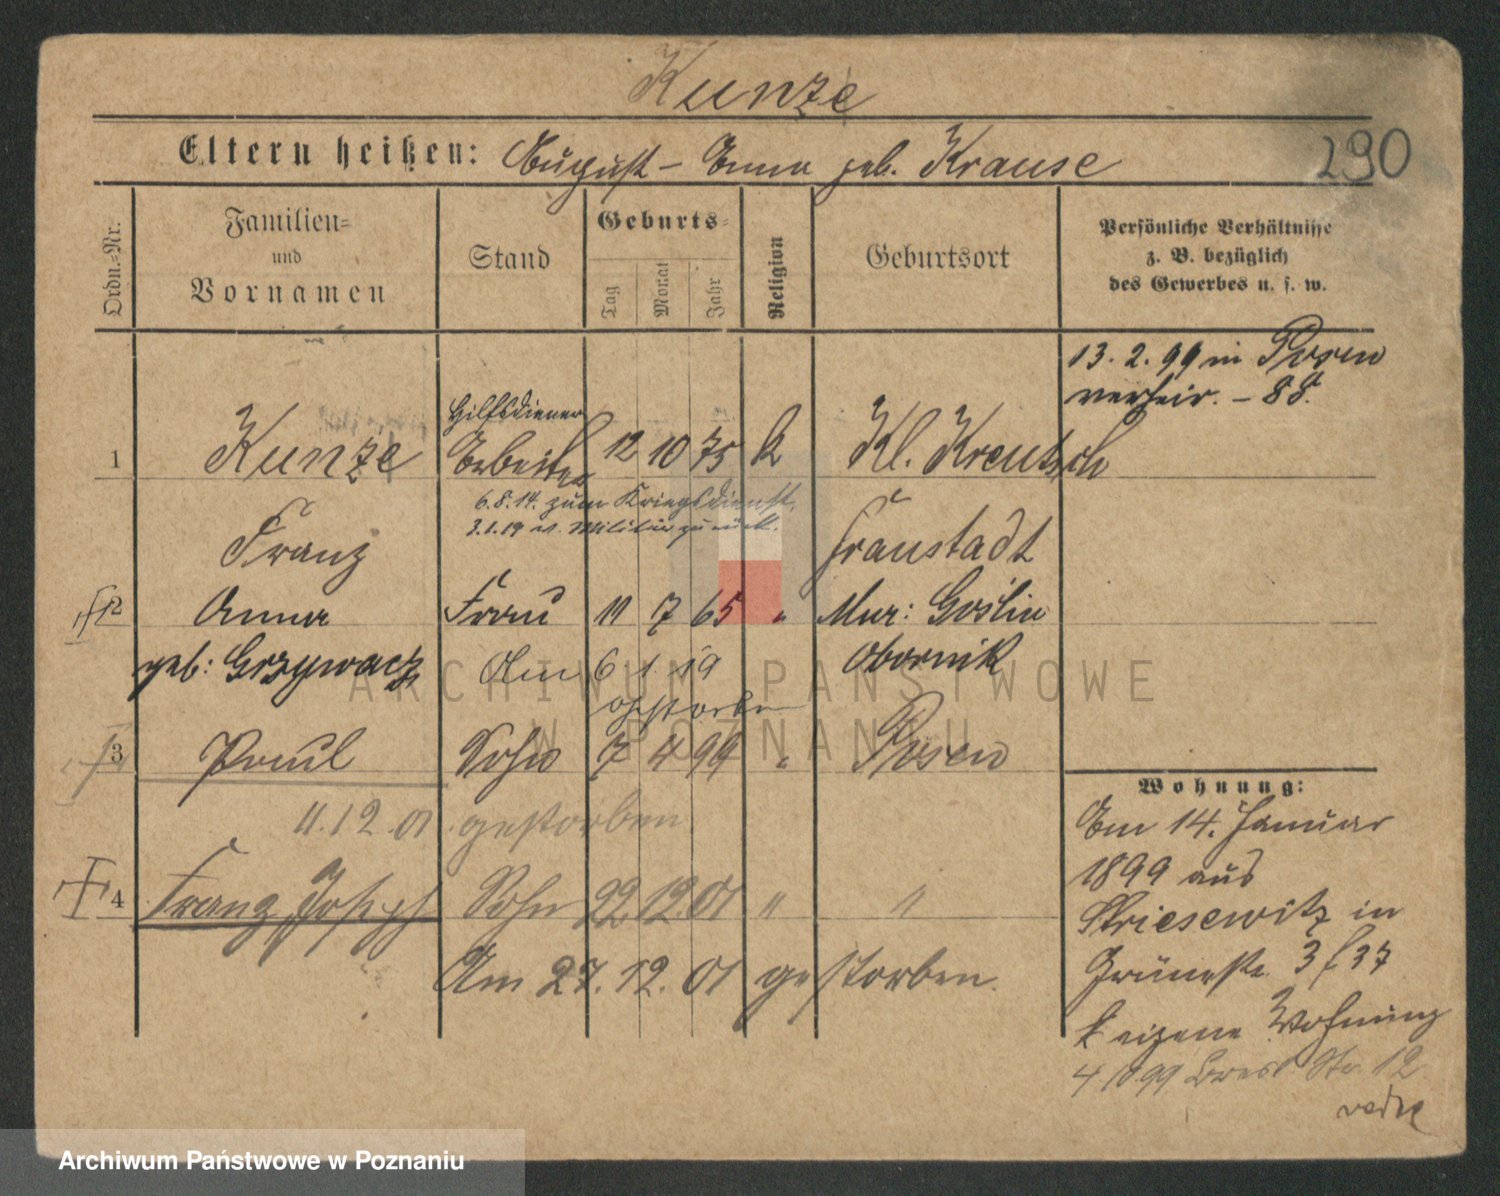 Kunze
290
Eltern heißen: August – Anna geb. Krause
Ordn.=Nr.
Familien=
und
Vornamen
Stand
Geburts=
Tag
Monat
Jahr
Religion
Geburtsort
Persönliche Verhältnisse
z. B. bezüglich
des Gewerbes u. s. w.
13. 2. 99 in Posen
verheir. –
Hilfsdiener
1 Kunze Arbeiter 12 10 75 k Kl. Kreutsch
6.8.14. zum Kriegsdienst.
3.1.19 v. Militär zurück.
Franz Fraustadt
2 Anna Frau 11 7 65 " Mur: Goslin
geb: Grzywacz Am 6 1 19 Obornik
gestorben
3 Paul Sohn 7 4 99 " Posen
11.12.01 gestorben
4 Franz Joseph Sohn 22 12. 01 " "
Am 27. 12. 01 gestorben.
Wohnung:
Am 14. Januar
1899 aus
Striesewitz in
Grünestr. 3
eigene Wohnung
4 99 Bresl Str. 12
ARCHIWUM PAŃSTWOWE
W POZNANIU
Archiwum Państwowe w Poznaniu